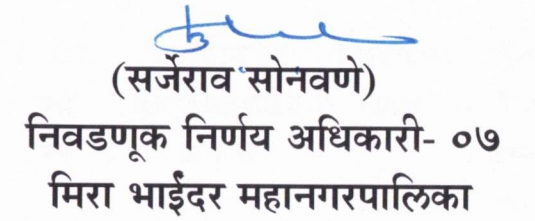 (सर्जेराव सोनवणे)
निवडणूक निर्णय अधिकारी- ०७
मिरा भाईंदर महानगरपालिका